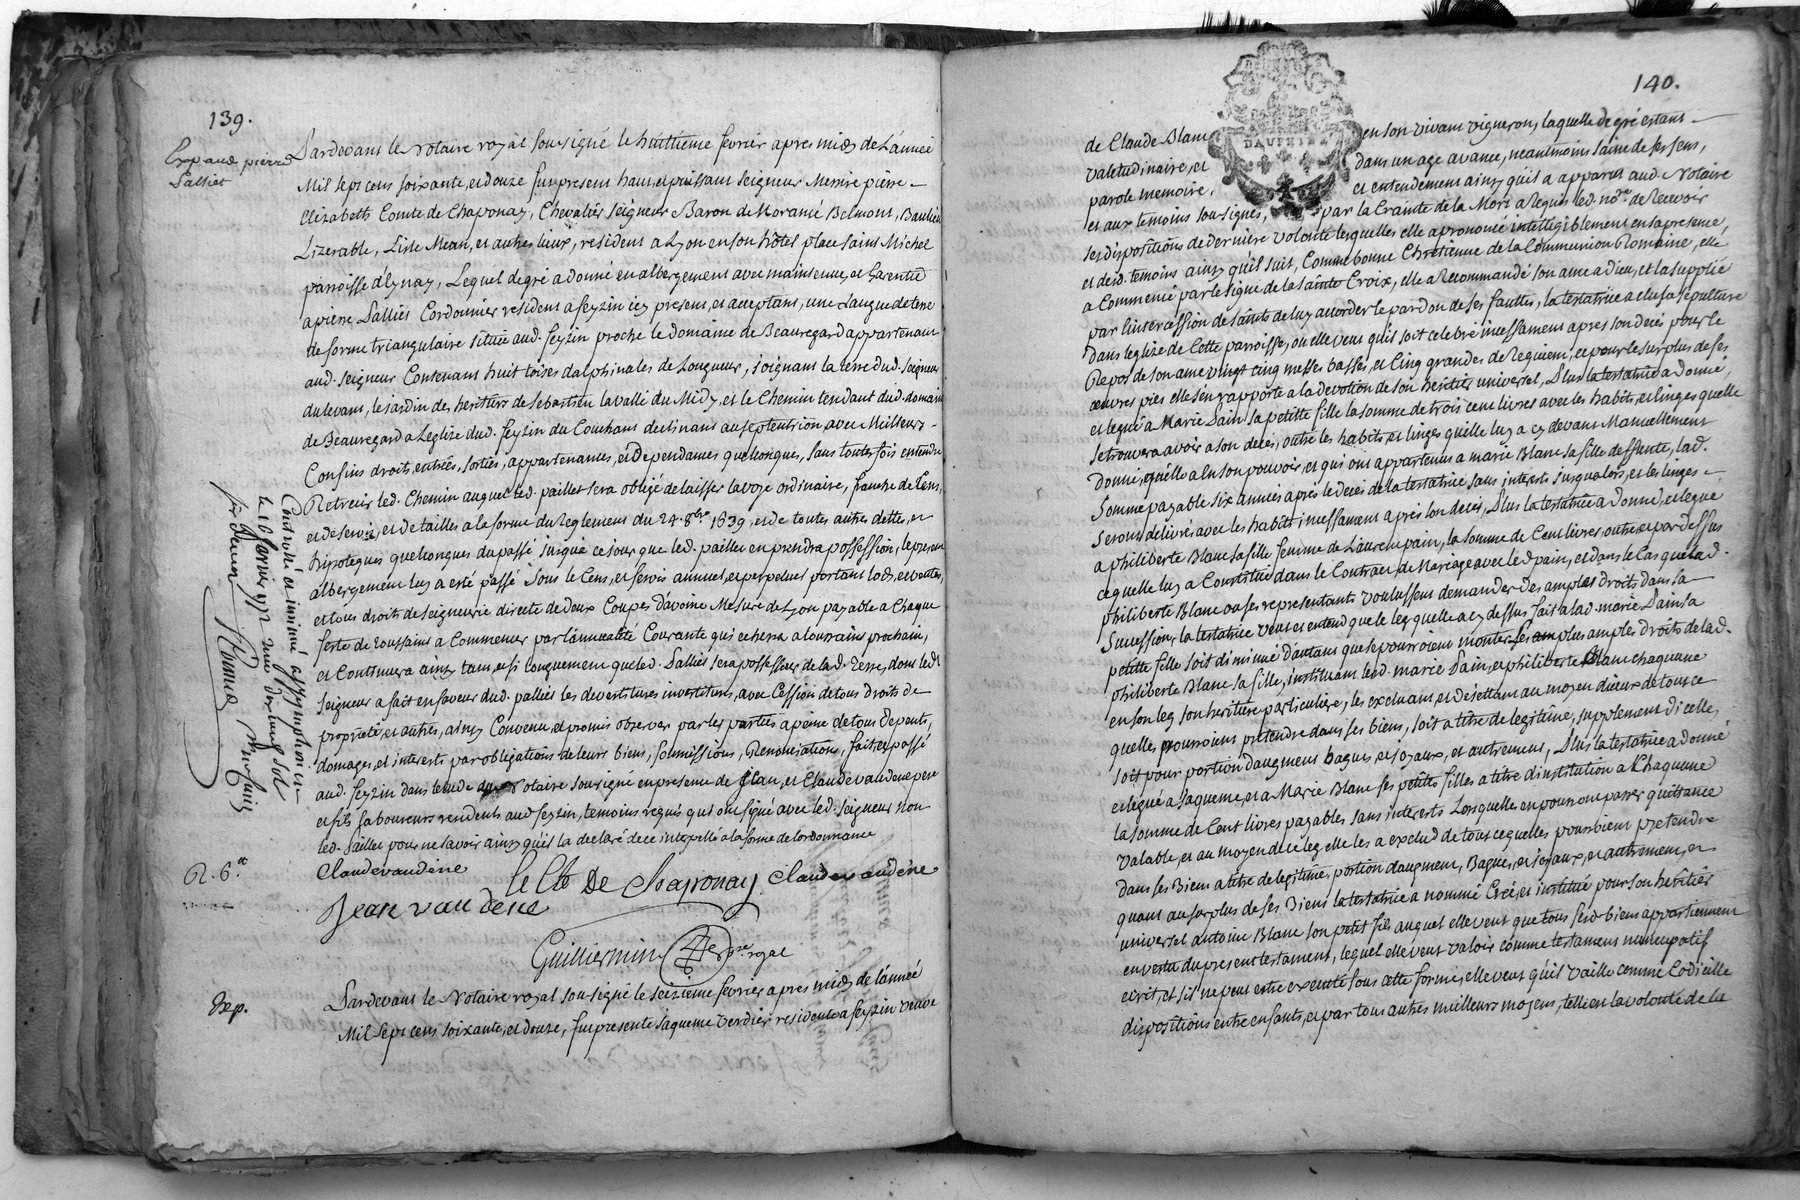 139.
Exp aud. pierre
Palliet
Pardevant le Notaire royal soussigné le huittieme fevrier apres midy de L'année
Mil sept cent soixante, et douze fut present haut et puissant seigneur Messire pierre
Elizabeth Comte de Chaponay, Chevalier Seigneur Baron de Morancé Belmont, Baulieu
Lizerable, Lisle Mean, et autres lieux, resident a Lyon en son hôtel place saint Michel
parroisse d'eynay, Lequel de gré a donné en albergement avec maintenue, et Garentie
a pierre Palliet Cordonnier resident a seyzin icy present, et acceptant, une Langue de terre
de forme triangulaire située aud. seyzin proche le domaine de Beauregard appartenant
aud. seigneur Contenant huit toises dalphinales de Longueur, joignant la terre dud. seigneur
du levant, le jardin des heritiers de sebastien lavallé du Midy, et le Chemin tendant dud. domaine
de Beauregard a Leglize dud. seyzin du Couchant declinant au septentrion avec Meilleurs
Confins droits, entrées, sorties, appartenances, et dependances quelconques, sans toutes fois entendre
Retrecir led. Chemin auquel led. paillet sera obligé de laisser la voye ordinaire, franche de Cens,
et de servis, et de tailles a la forme du Reglement du 24. 8bre 1639, et de toutes autres dettes, et
hipoteques quelconques du passé jusqu'a ce jour que led. paillet en prendra possession, le present
albergement luy a esté passé sous le Cens, et servis annuel, et perpetuel portant lods, et ventes,
et tous droits de seigneurie directe de deux Coupes d'avoine Mesure de Lyon payable a Chaque
feste de toussaint a Commencer par l'annualité Courante qui echerra a toussaint prochain,
et Continuera ainsy tant, et si longuement que led. Palliet sera possesseur de lad. Terre, dont led.
seigneur a fait en faveur dud. palliet les devestitures investitures, avec Cession de tous droits de
proprieté et autres, ainsy Convenu, et promis observer par les parties a peine de tous depents,
domages, et interests par obligations de leurs biens, soumissions, Renonciations, fait, et passé
aud. seyzin dans letude du Notaire soussigné en presence de Jean, et Claude vaudene pere
et fils Laboureurs residents aud seyzin, temoins requis qui ont signé avec led. seigneur non
led. paillet pour ne savoir ainsy qu'il la declaré de ce interpellé a la forme de lordonnance
Controllé et insinué a st symphorien
le 18 fevrier 1772
R. 6.
Claude vaudene
le Cte De Chaponay Claude vaudene
Jean vaudene
Guilliermin nre royal
Exp.
Pardevant le Notaire royal soussigné le seizieme fevrier apres midy de L'année
Mil sept cent soixante, et douze, fut presente Jaqueme verdier residente a seyzin veuve
140.
DAUPHINE
de Claude Blanc en son vivant vigneron, laquelle de gré estant
valetudinaire, et dans un age avancé, neantmoins saine de ses sens,
parole memoire, et entendement ainsy qu'il a apparu aud. Notaire
et aux temoins soussignés, par la Crainte de la Mort a Requis led. nore de Recevoir
ses dispositions de derniere volonté lesquelles elle a prononcé intelligiblement en sa presence,
et desd. temoins ainsy qu'il suit, Comme bonne Chretienne de la Communion Romaine, elle
a Commencé par le signe de la sainte Croix, elle a Recommandé son ame a dieu, et la supplié
par l'intercession de saints de luy accorder le pardon de ses fauttes, la testatrice a elu sa sepulture
dans leglize de Cette parroisse, ou elle veut qu'il soit celebré incessament apres son decés pour le
Repos de son ame vingt cinq messes basses, et Cinq grandes de Requiem, et pour le surplus de ses
œuvres pies elle s'en rapporte a la devotion de son heritier universel, Plus la testatrice a donné,
et legué a Marie Pain sa petitte fille la somme de trois cent livres avec les habits, et linges quelle
se trouvera avoir a son decés, outre les habits, et linges quelle luy a cy devant Manuellement
Donné, qu'elle a en son pouvoir, et qui ont appartenus a marie Blanc sa fille deffunte, lad.
Somme payable six années apres le decés de la testatrice, sans interests jusqu'alors, et les linges
seront delivrés avec les habits incessament apres son decés, Plus la testatrice a donné, et legué
a philiberte Blanc sa fille femme de Laurent pain, la somme de Cent livres, outre, et par dessus
ce quelle luy a Constitué dans le Contract de Mariage avec led. pain, et dans le Cas que lad.
philiberte Blanc ou ses representants voulussent demander des amples droits dans sa
Succession, la testatrice veut et entend que le leg quelle a cy dessus fait a lad. marie Pain sa
petitte fille soit diminué d'autant que pourroient monter les plus amples droits de lad.
philiberte Blanc sa fille, instituant lesd. marie Pain, et philiberte Blanc chaquune
en son leg son heritiere particuliere, les excluant, et déjettant au moyen d'iceux de tout ce
quelles pourroient pretendre dans ses biens, soit a titre de legitime, supplement d'icelle,
soit pour portion d'augment bagues, et joyaux, et autrement, Plus la testatrice a donné
et legué a Jaqueme, et a Marie Blanc ses petites filles a titre d'institution a Chaquune
la somme de Cent livres payables sans interests Lorsquelles en pourront passer quittance
valable, et au moyen de ce leg elle les a exclud de tout ce quelles pourroient pretendre
dans ses Biens a titre de legitime, portion d'augment, Bagues, et joyaux, et autrement, et
quant au surplus de ses Biens la testatrice a nommé Créé, et institué pour son heritier
universel antoine Blanc son petit fils auquel elle veut que tous sesd. biens appartiennent
en vertu du present testament, lequel elle veut valoir comme testament nuncupatif
ecrit, et s'il ne peut estre executé sous cette forme, elle veut qu'il vaille comme Codicille
dispositions entre enfants, et par tous autres meilleurs moyens, telle en la volonté de la